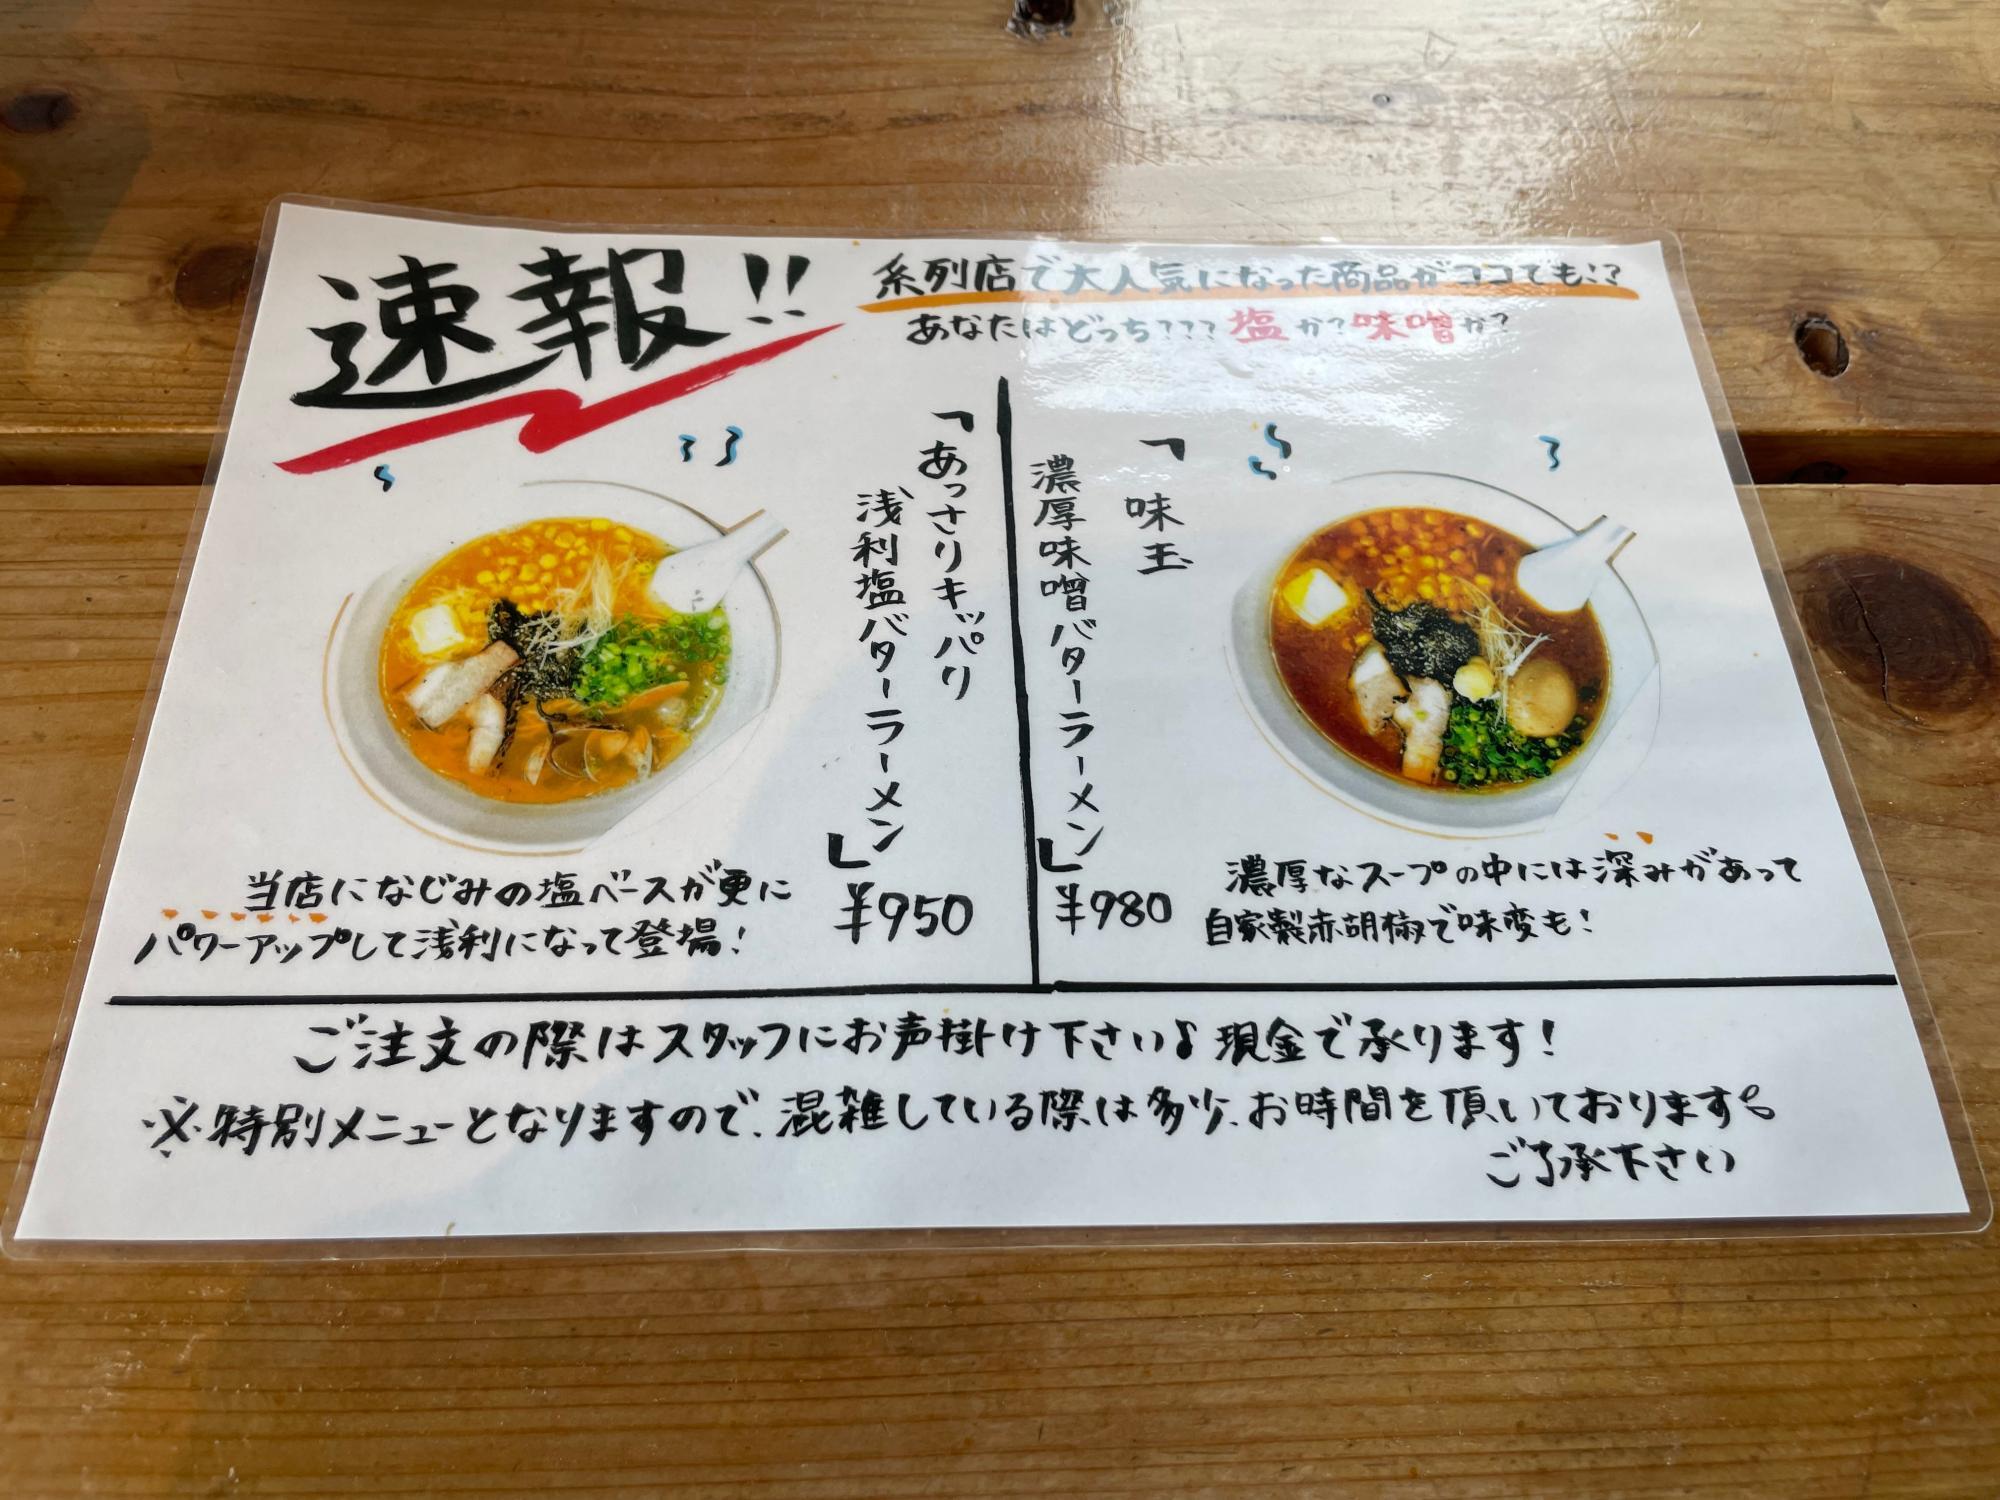 速報!!
系列店で大人気になった商品がココでも!?
あなたはどっち???塩か?味噌か?
「あっさりキッパリ
浅利塩バターラーメン」
¥950
当店になじみの塩ベースが更に
パワーアップして浅利になって登場!
「味玉
濃厚味噌バターラーメン」
¥980
濃厚なスープの中には深みがあって
自家製赤胡椒で味変も!
ご注文の際はスタッフにお声掛け下さい♪現金で承ります!
※特別メニューとなりますので、混雑している際は多少、お時間を頂いております。
ご了承下さい